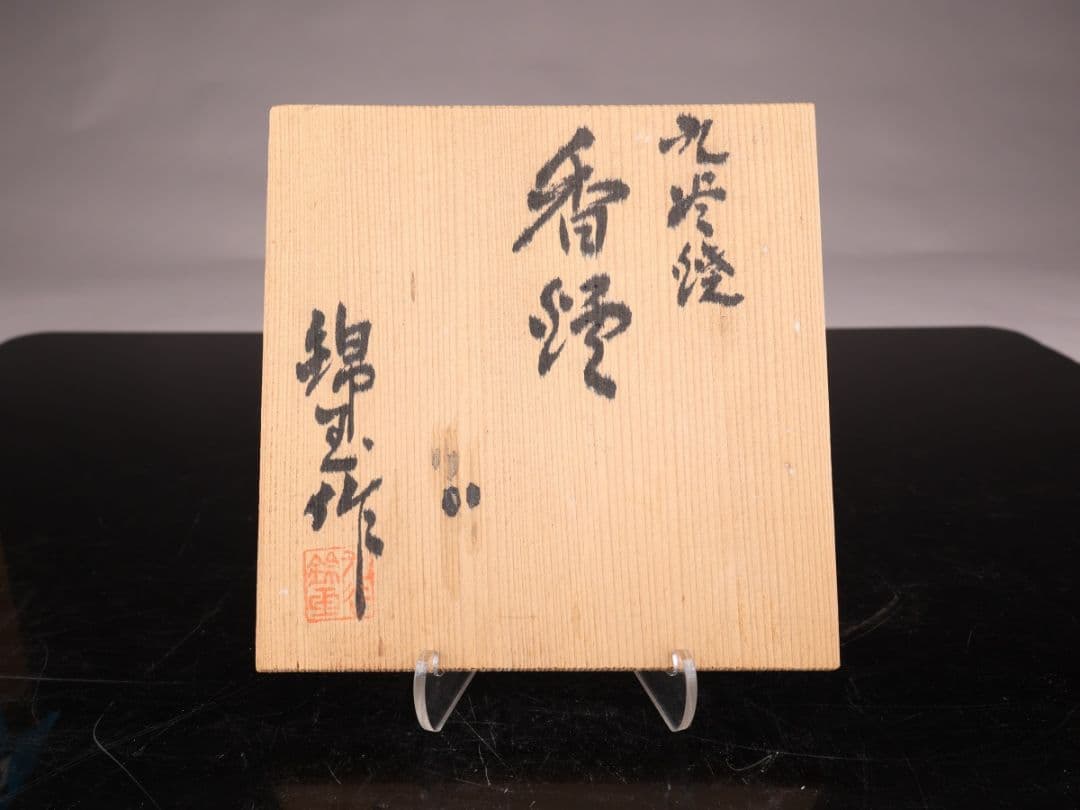 九谷焼
香爐
錦玉作